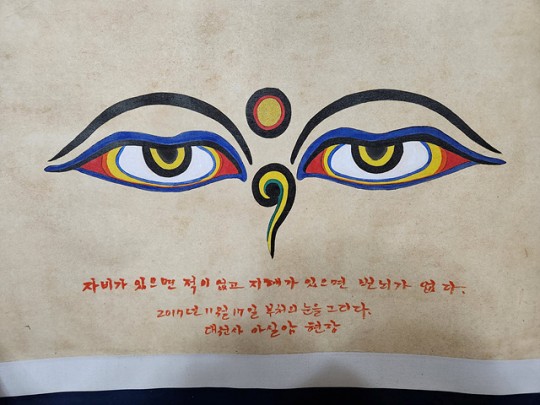 자비가 있으면 적이 없고 지혜가 있으면 번뇌가 없다.
2017년 11월 17일 부처의 눈을 그리다.
대원사 아실암 현장